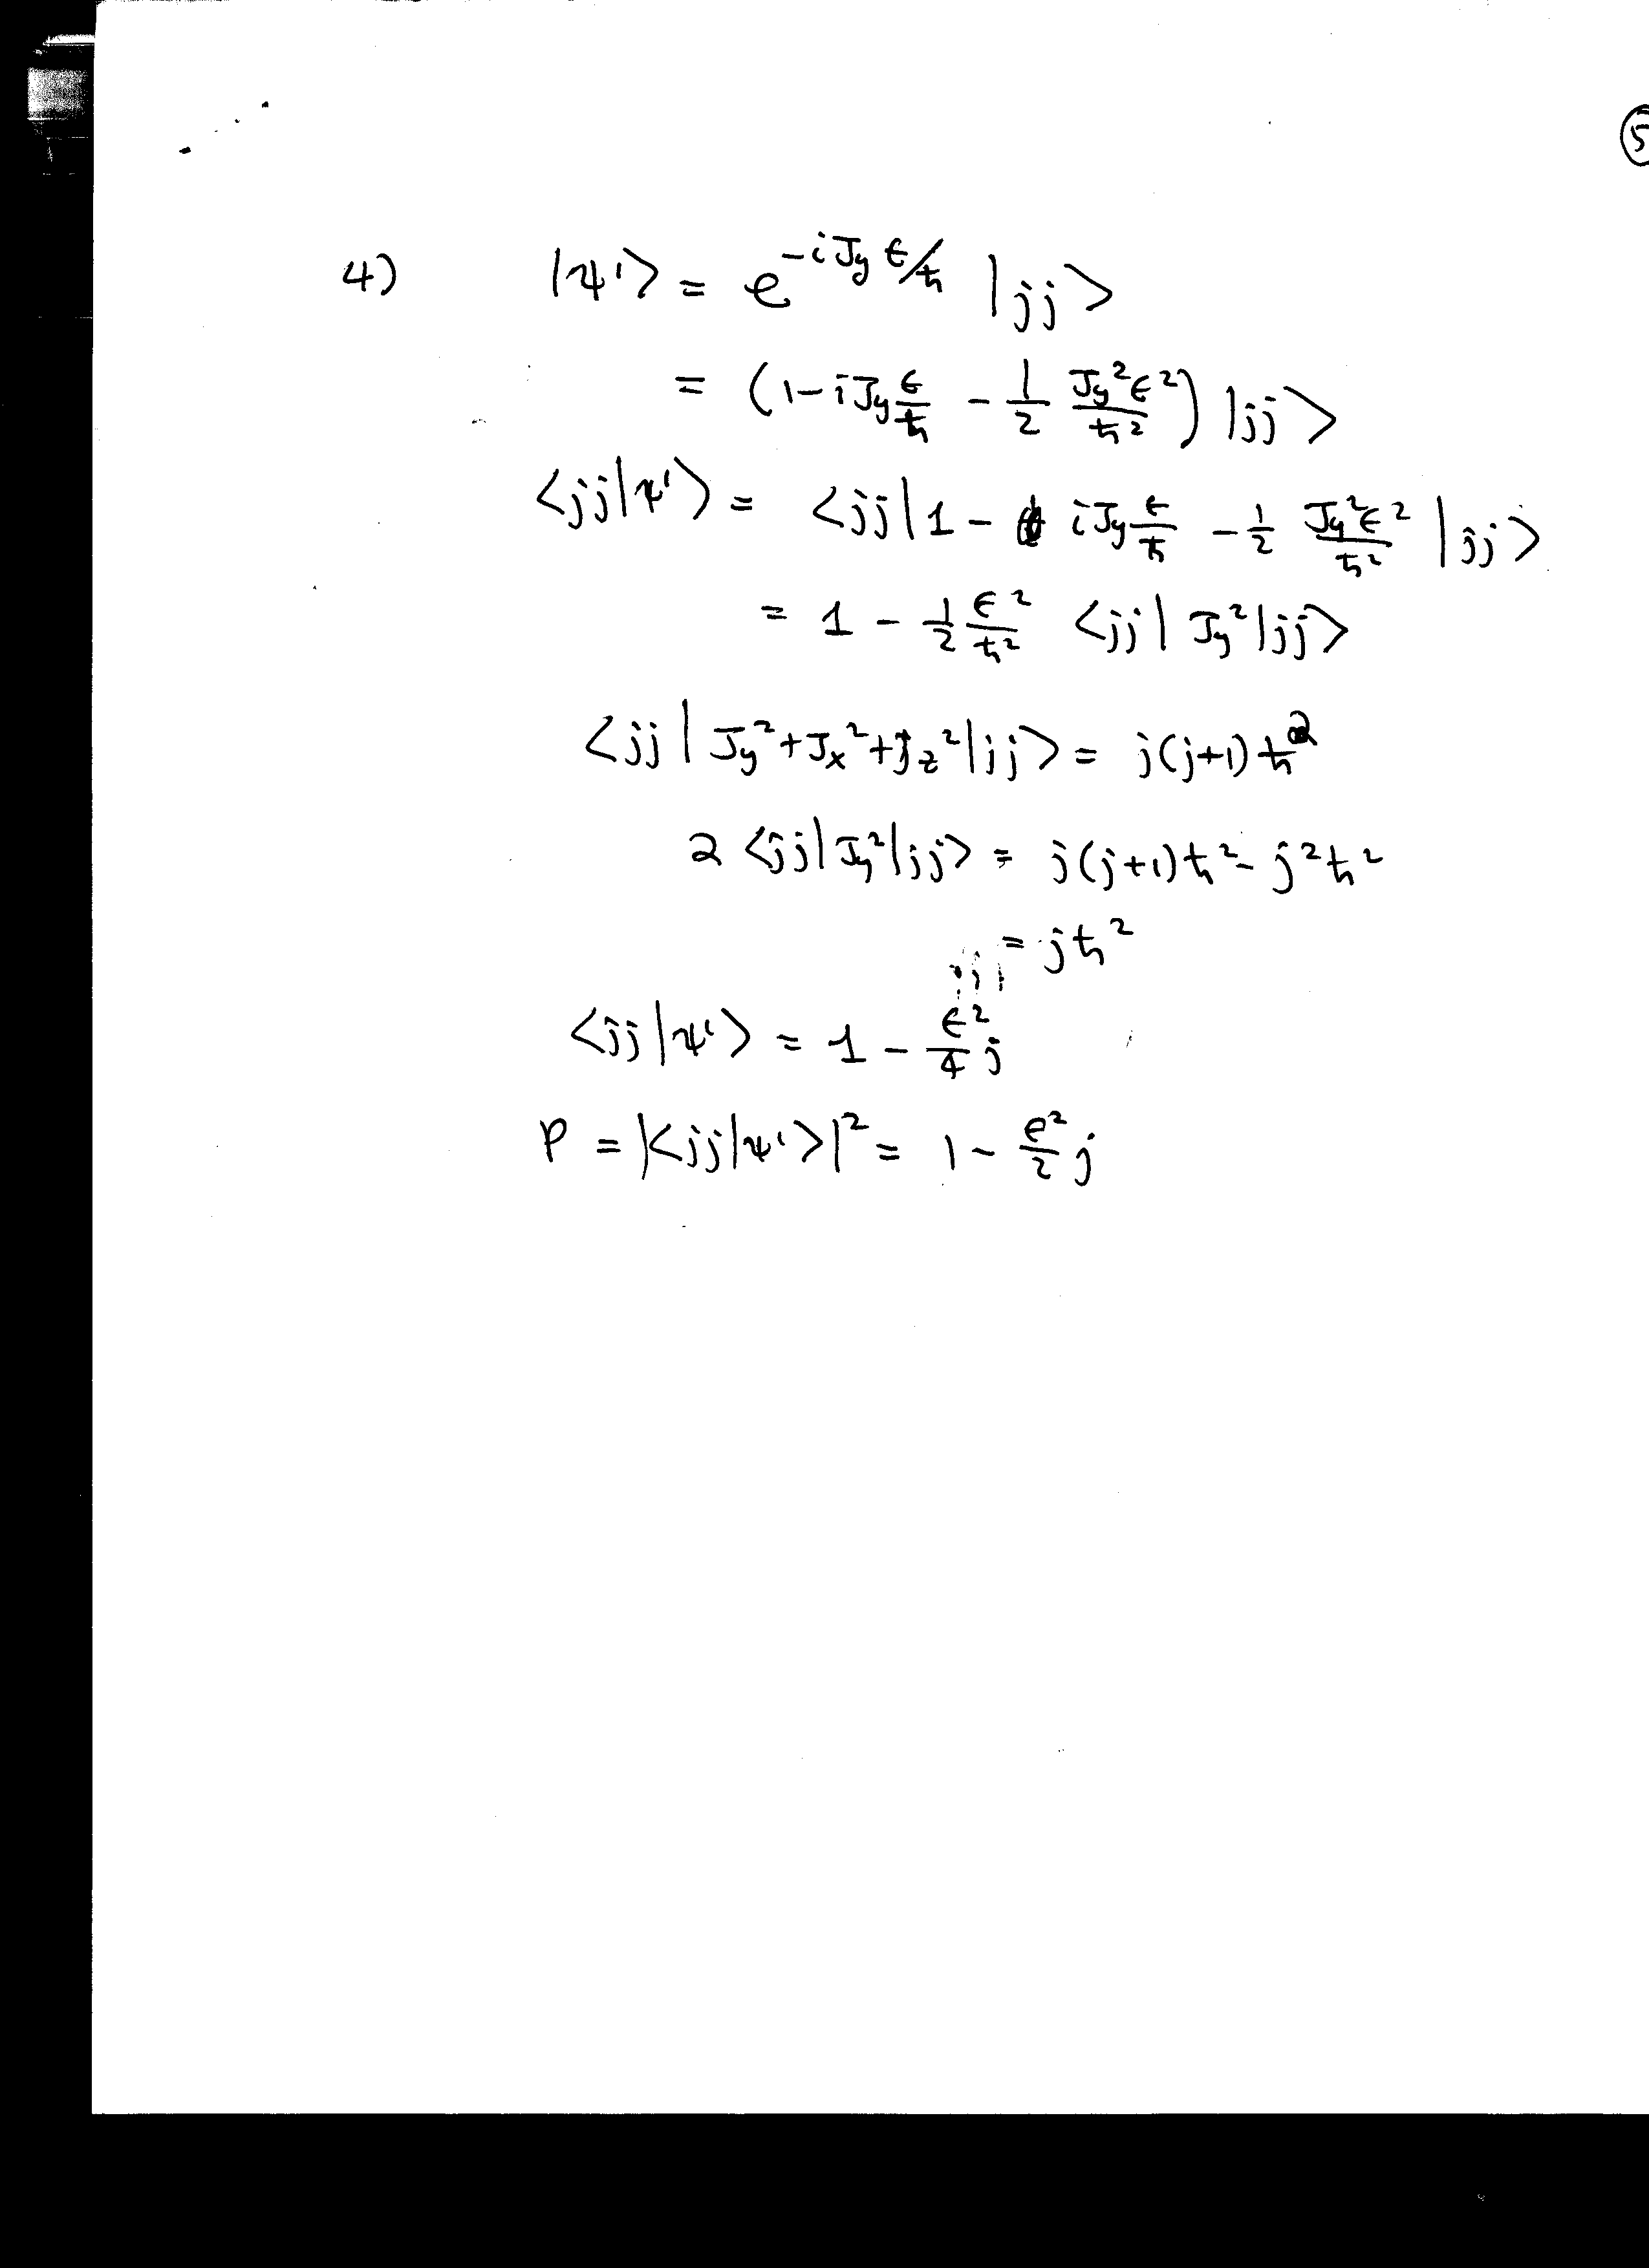 ⑤
4) |ψ'> = e^{-iJyϵ/ħ} |jj>
= (1 - iJy ϵ/ħ - 1/2 Jy²ϵ²/ħ²) |jj>
<jj|ψ'> = <jj|1 - iJy ϵ/ħ - 1/2 Jy²ϵ²/ħ² |jj>
= 1 - 1/2 ϵ²/ħ² <jj| Jy² |jj>
<jj| Jy² + Jx² + Jz² |jj> = j(j+1)ħ²
2 <jj|Jy²|jj> = j(j+1)ħ² - j²ħ²
= jħ²
<jj|ψ'> = 1 - ϵ²/4 j
P = |<jj|ψ'>|² = 1 - ϵ²/2 j